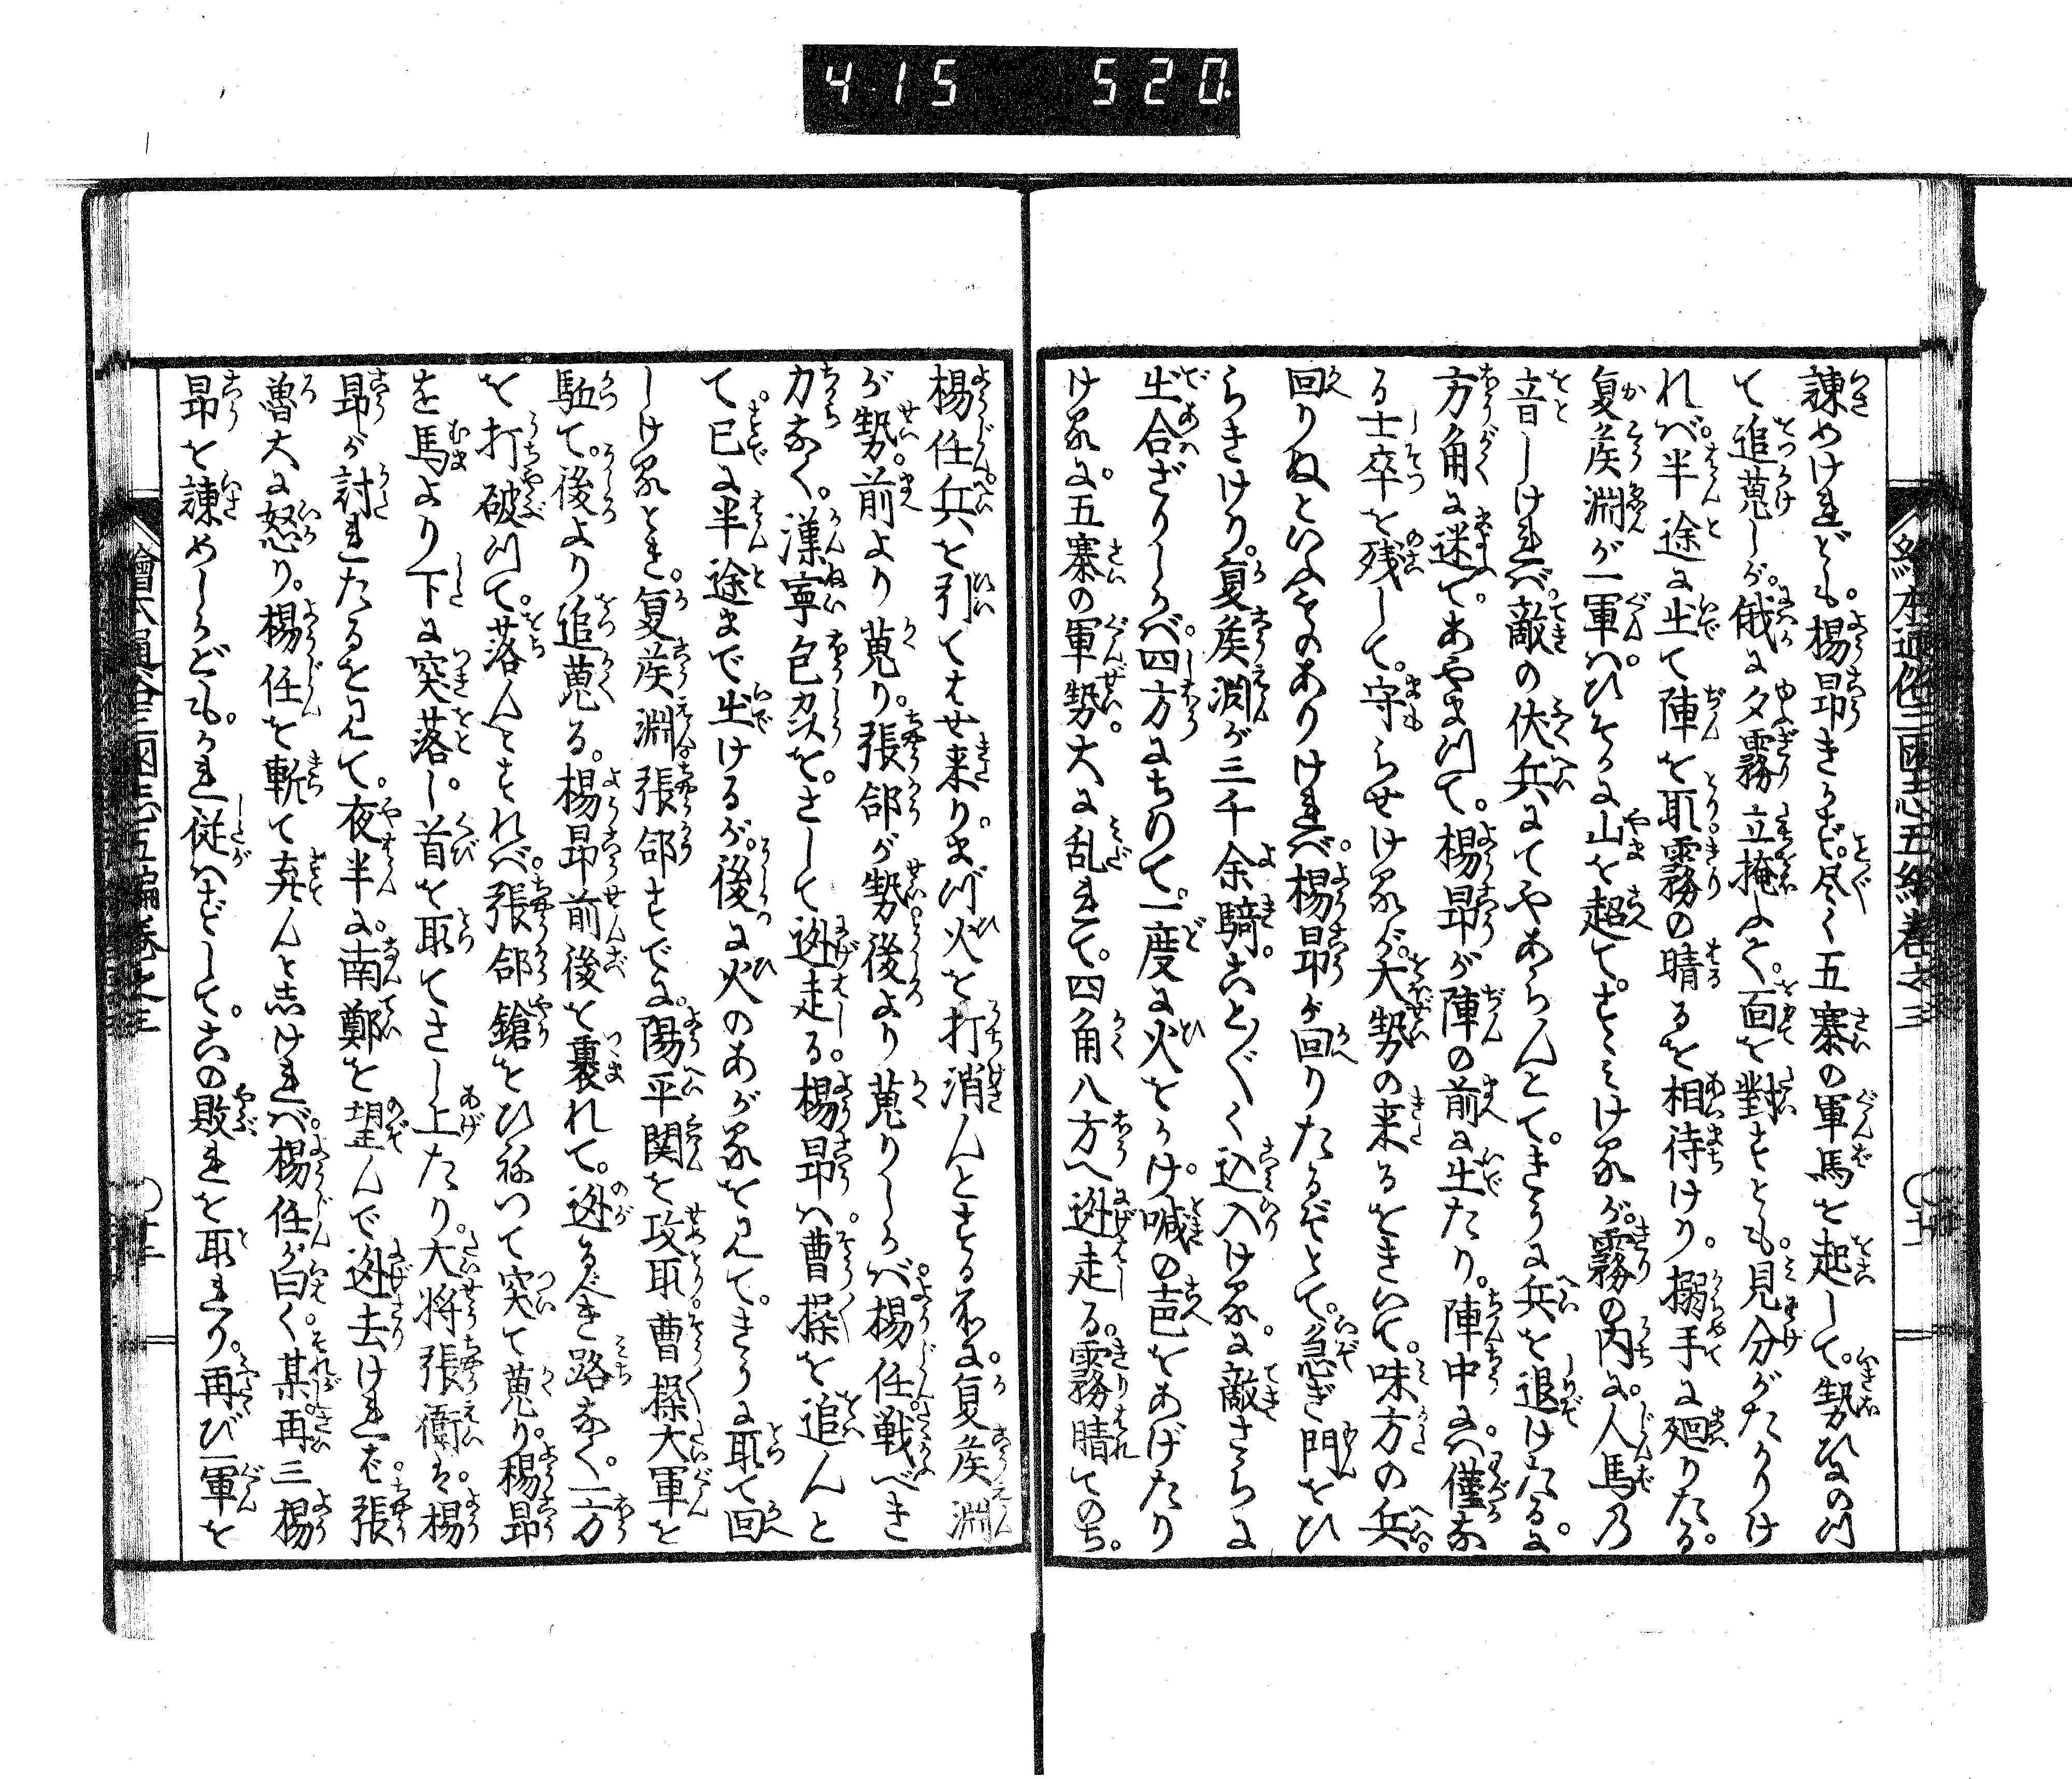 415 520
絵本通俗三国志五編巻之三
諫めけれども。楊昂きかず。尽く五寨の軍馬を起して。勢ひみのり
て追蒐しが。俄に夕霧立掩ふて。面を對すとも。見分がたかりけ
れバ。半途に出て陣を取。霧の晴るを相待けり。搦手に廻りたる。
夏侯淵が一軍ハ。ひそかに山を超て。すゝみけるが。霧の内に。人馬乃
音しけれバ。敵の伏兵にてやあらんとて。きうに兵を退けたるに。
方角に迷て。あやまつて。楊昂が陣の前に出たり。陣中にハ僅な
る士卒を残して。守らせけるが。大勢の来るをきいて。味方の兵。
回りぬといふものありけれバ。楊昂が回りたるぞとて。急ぎ門をひ
らきけり。夏侯淵が三千余騎。こと〴〵く込入けるに。敵さらに
出合ざりしかバ。四方にちりて。一度に火をかけ。喊の声をあげたり
けるに。五寨の軍勢。大に乱れて。四角八方へ逃走る。霧晴てのち。
楊任兵を引てはせ来り。まづ火を打消んとする所に。夏侯淵
が勢。前より蒐り。張郃が勢後より蒐りしかバ。楊任戦べき
力なく。漢寧包州をさして逃走る。楊昂ハ曹操を追んと
て。已に半途まで出けるが。後に火のあがるを見て。きうに取て回
しけるとき。夏侯淵。張郃すでに。陽平関を攻取。曹操大軍を
駈て。後より追蒐る。楊昂前後を裹れて。逃るべき路なく。一方
を打破つて。落んとすれバ。張郃鎗をひねつて突て蒐り。楊昂
を馬より下に突落し。首を取てさし上たり。大将張衛は。楊
昂が討れたるを見て。夜半に。南鄭を望んで逃去けれバ。張
魯大に怒り。楊任を斬て弃んとしけれバ。楊任が曰く。某再三楊
昂を諫めしかども。かれ従ハずして。この敗れを取れり。再び一軍を
繪本通俗三國志五編巻之三